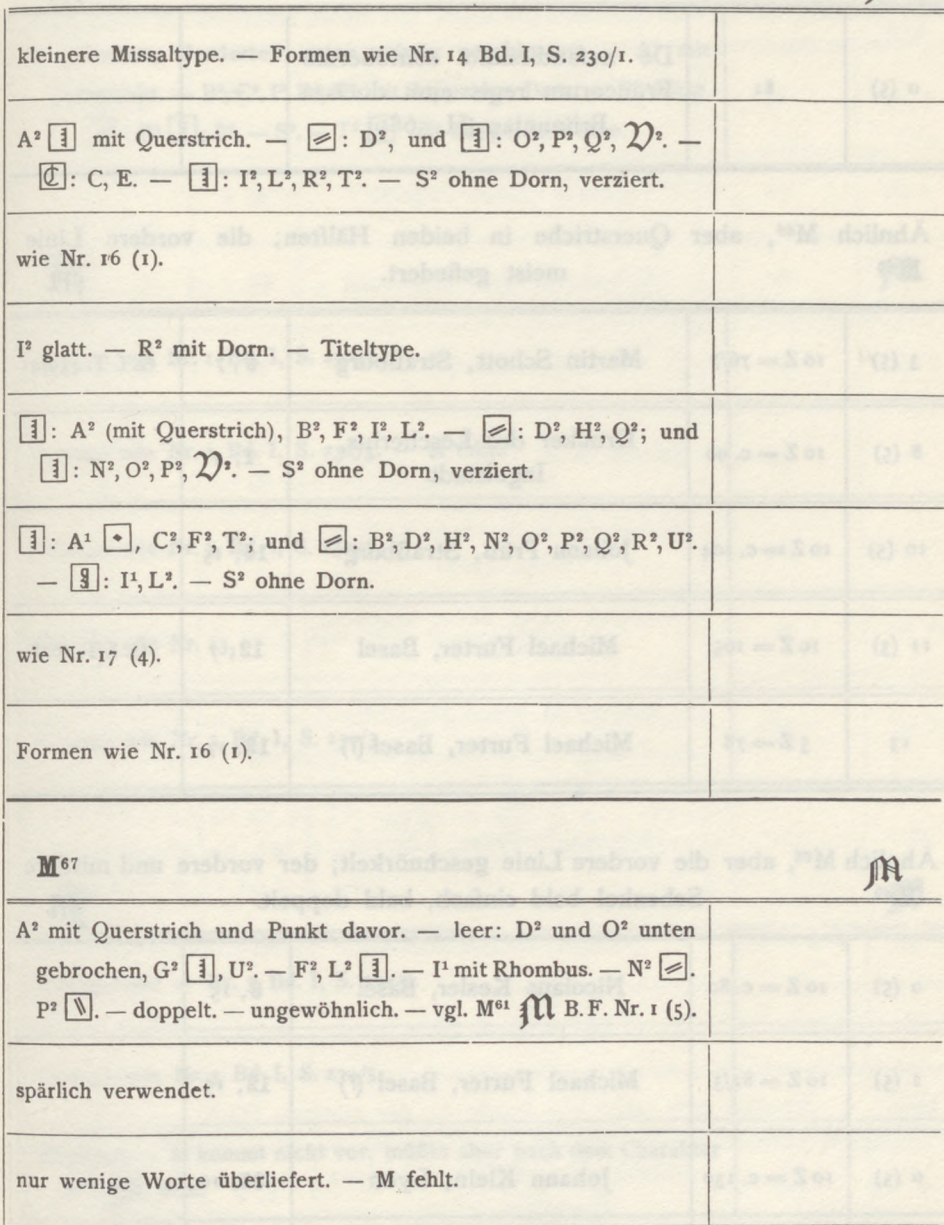 kleinere Missaltype. — Formen wie Nr. 14 Bd. I, S. 230/1.
A² mit Querstrich. — : D², und : O², P², Q², 𝔙². —
ℭ: C, E. — : I², L², R², T². — S² ohne Dorn, verziert.
wie Nr. 16 (1).
I² glatt. — R² mit Dorn. — Titeltype.
: A² (mit Querstrich), B², F², I², L². — : D², H², Q²; und
: N², O², P², 𝔙². — S² ohne Dorn, verziert.
: A¹ , C², F², T²; und : B², D², H², N², O², P², Q², R², U².
— : I¹, L². — S² ohne Dorn.
wie Nr. 17 (4).
Formen wie Nr. 16 (1).
M⁶⁷ 𝔐
A² mit Querstrich und Punkt davor. — leer: D² und O² unten
gebrochen, G² , U². — F², L² . — I¹ mit Rhombus. — N² .
P² . — doppelt. — ungewöhnlich. — vgl. M⁶¹ 𝔐 B. F. Nr. 1 (5).
spärlich verwendet.
nur wenige Worte überliefert. — M fehlt.